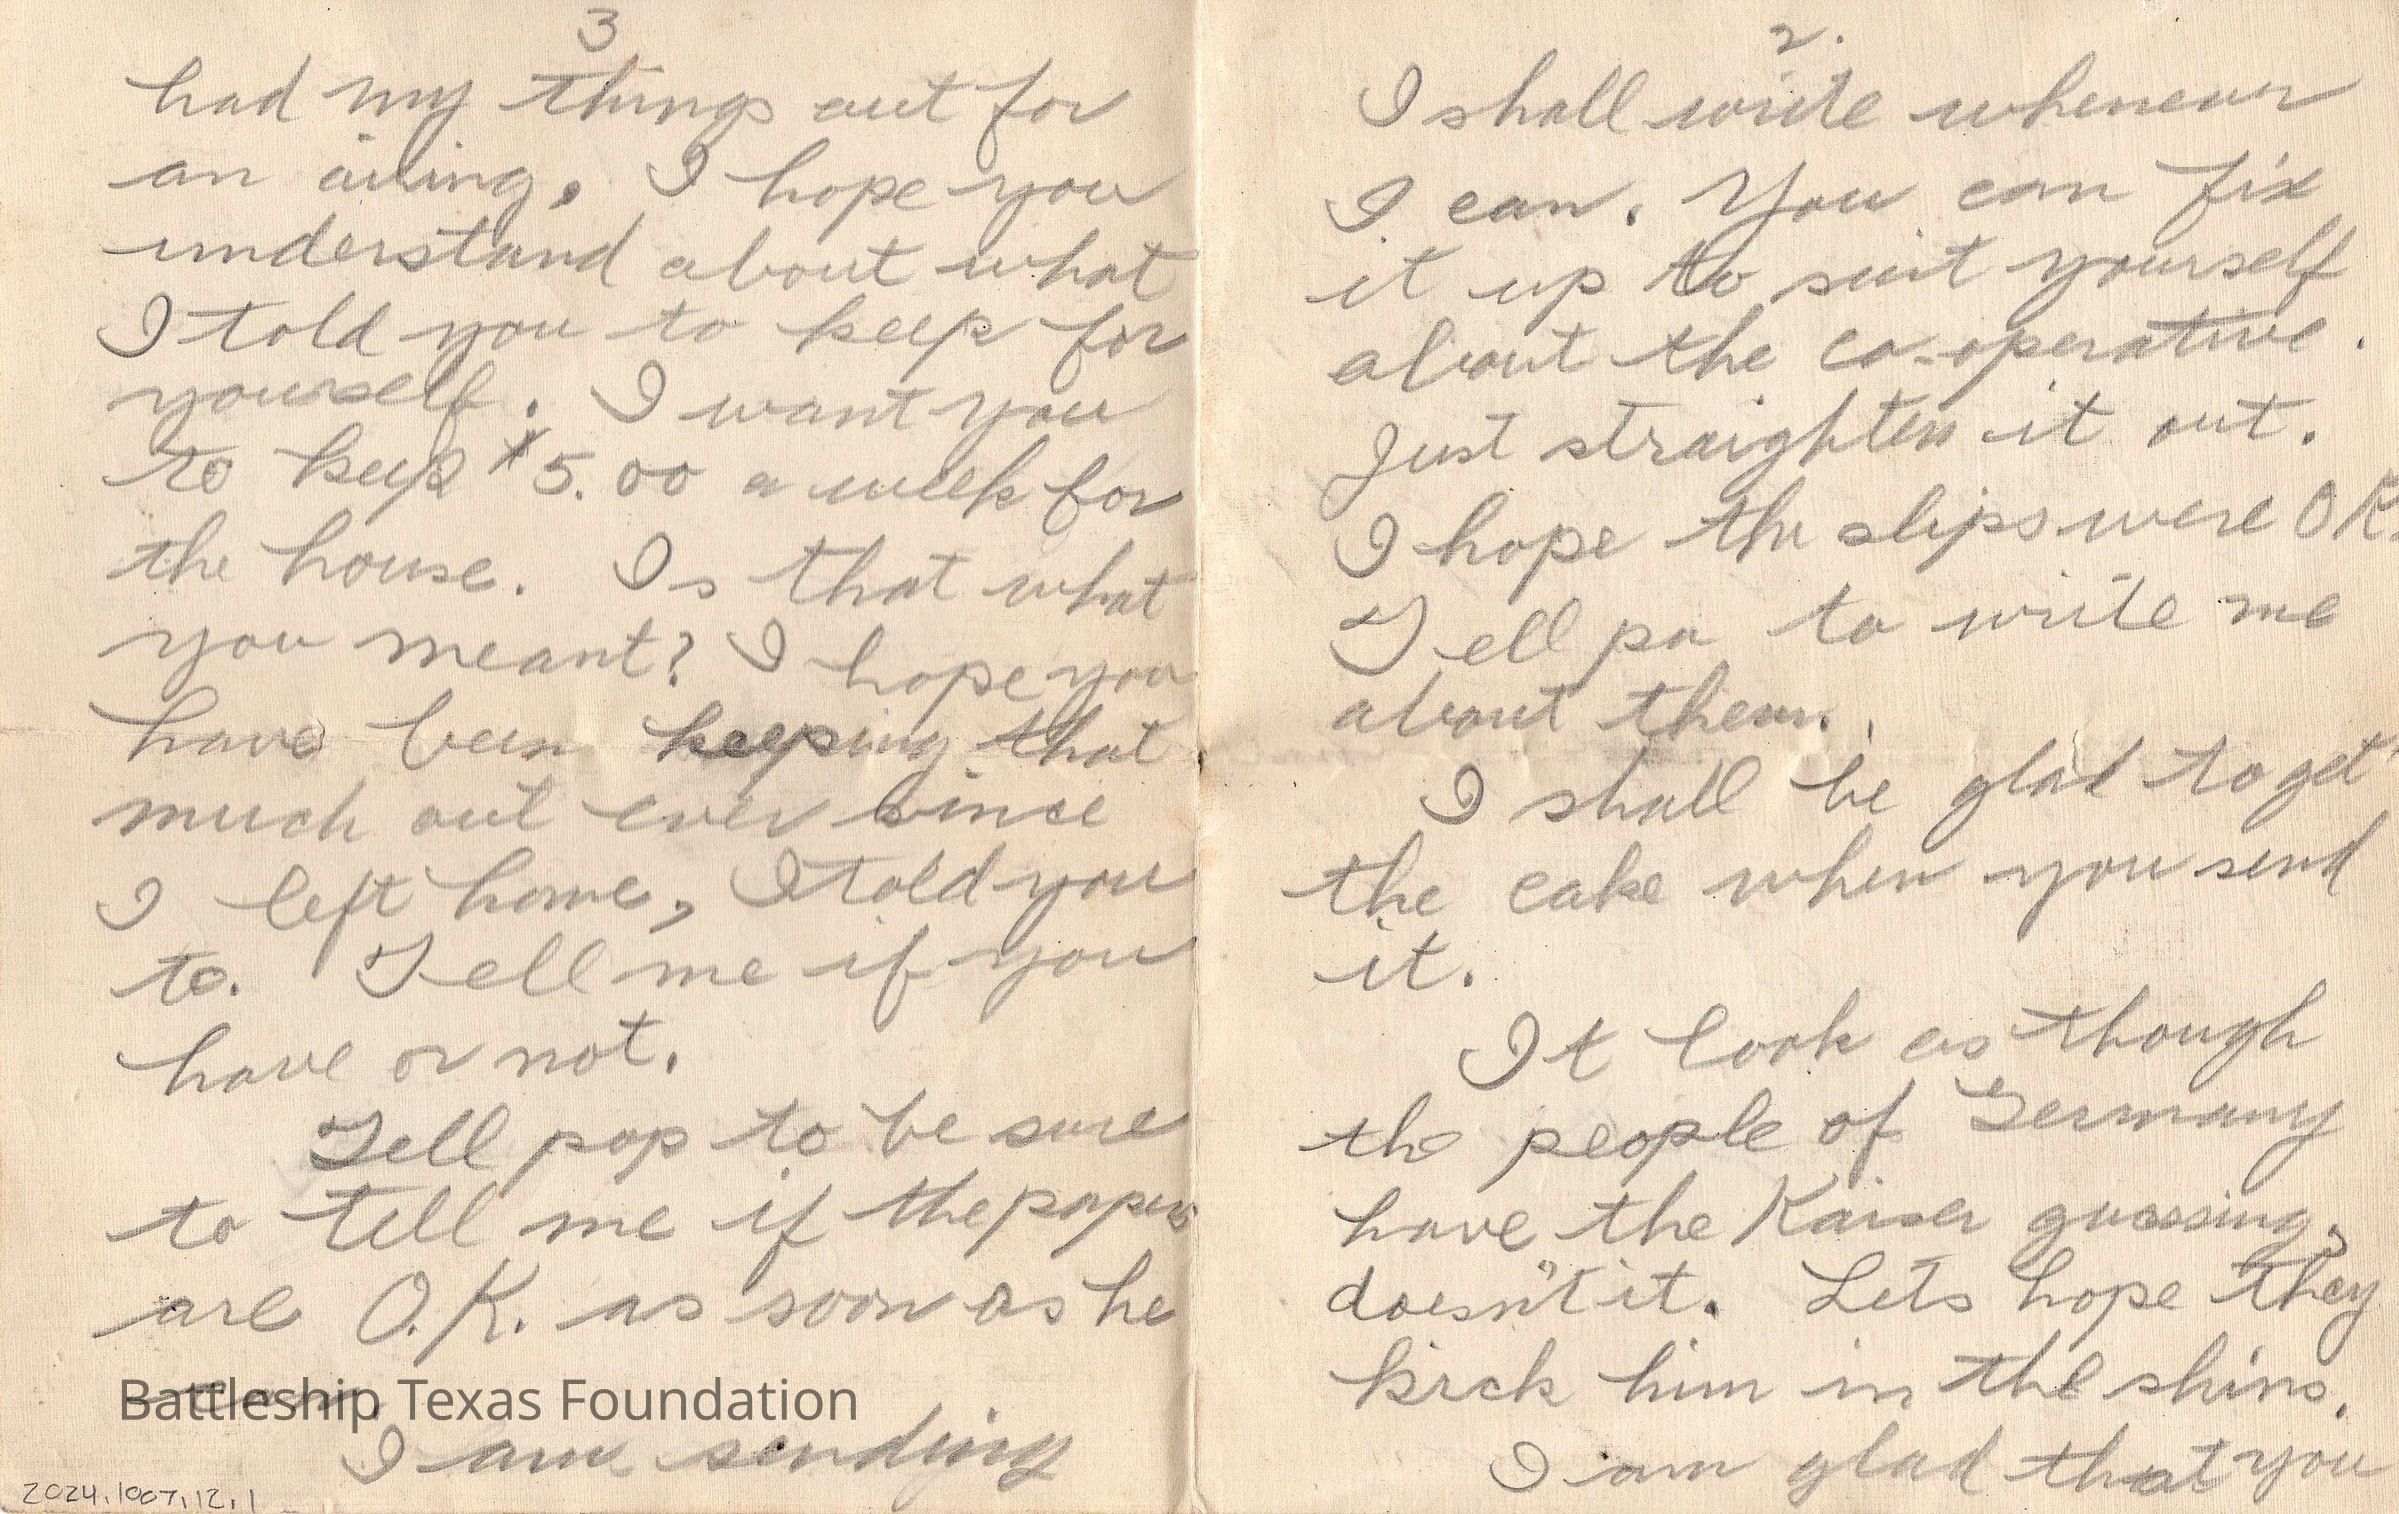 3
had my things out for
an airing. I hope you
understand about what
I told you to keep for
yourself. I want you
to keep $5.00 a week for
the house. Is that what
you meant? I hope you
have been keeping that
much out ever since
I left home, I told you
to. Tell me if you
have or not.
Tell pop to be sure
to tell me if the papers
are O.K. as soon as he
can.
I am sending
Battleship Texas Foundation
2024.1007.12.1
2.
I shall write whenever
I can. You can fix
it up to suit yourself
about the co-operative.
Just straighten it out.
I hope the slips were OK.
Tell pa to write me
about them.
I shall be glad to get
the cake when you send
it.
It look as though
the people of Germany
have the Kaiser guessing,
doesn't it. Lets hope they
kick him in the shins.
I am glad that you